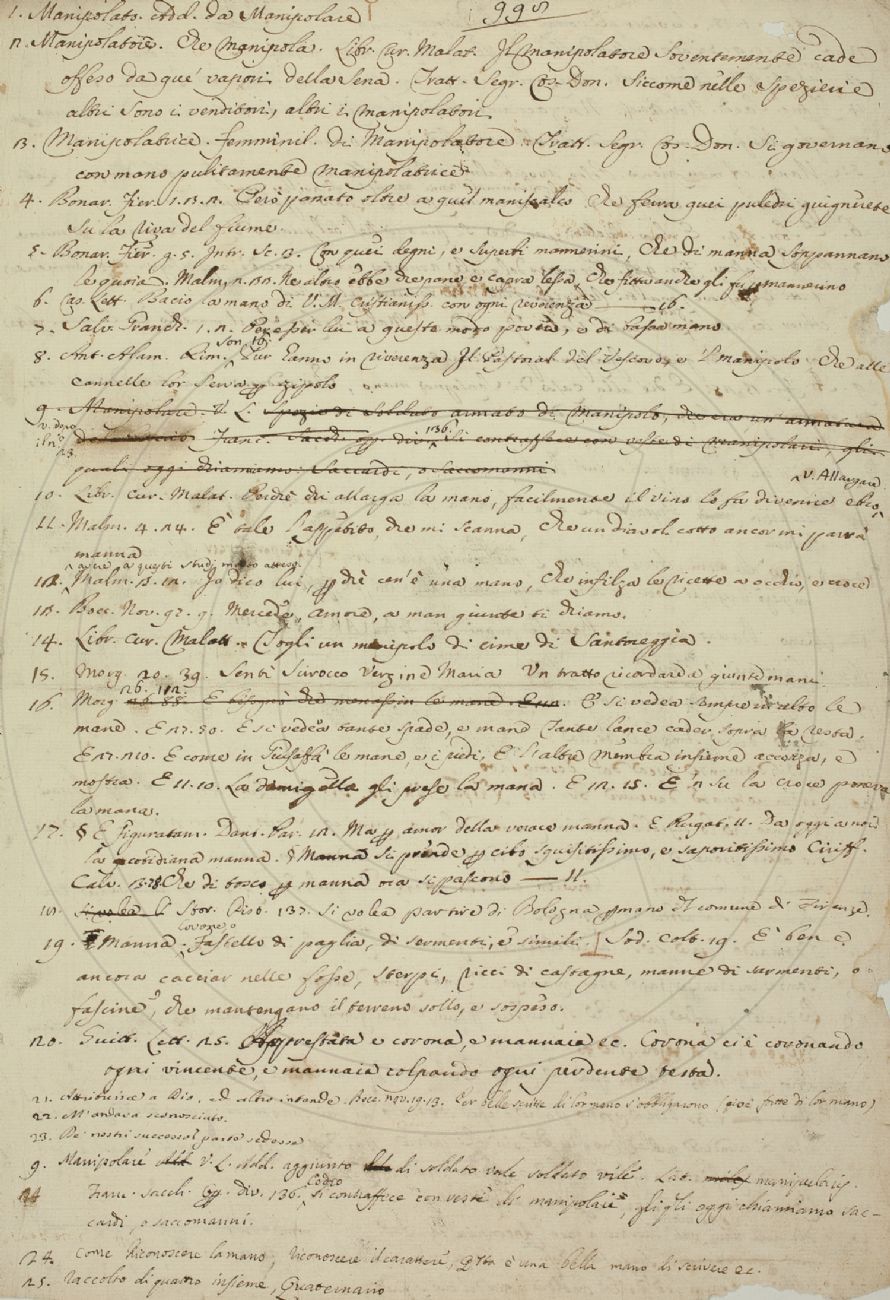 998
1. Manipolato. add. da Manipolare
2. Manipolatore. Che manipola. Libr. Cur. Malat. Il manipolatore soventemente cade
offeso da que' vapori della Sena. Tratt. Segr. Cos. Don. Siccome nelle Spezierie
altri sono i venditori, altri i manipolatori.
3. Manipolatrice. femminil. di Manipolatore. Tratt. Segr. Cos. Don. Si governano
con mano pulitamente manipolatrice
4. Bonar. Fier. 1. 3. 2. Però panato oltre a quel maniscalco che ferra quei puledri
su la riva del fiume.
5. Bonar. Fier. g. 5. Intr. Sc. 3. Con quei degni, e superbi mannerini, che di manna soppannano
le quoia. Malm. Ne altro ebbe che pane e capra lessa, mannerino
6. Cas. Lett. Bacio la mano di V. M. Cristianiss. con ogni reverenza 16.
7. Salv. Granch. 1. 2. Per esser lui a questo modo povero, e di bassa mano
8. Ant. Alam. Rim. Son. 19. Fur hanno in riverenza Il Pastoral del Vescovo, e 'l manipolo che alle
cannelle lor serva per zipolo
9. Manipolare. V. L. Spezie di Soldato armato di manipolo, che era un'armatura
Franc. Sacch. Op. div. 136. Si contraffece con veste di manipolari, gli
quali oggi chiamiamo Saccardi, o Saccomanni
v. Allargare
10. Libr. Cur. Malat. Perchè chi allarga la mano, facilmente il vino lo fa divenire ebro,
11. Malm. 4. 24. È tale l'appetito, che mi scanna, Che un diavol cotto ancor mi parrà
manna
a questi studj molto atteso
12. Malm. 3. 12. Io dico lui, perchè cen'è una mano, Che infilza le ricette a occhio, e croce
13. Bocc. Nov. 97. 9. Mercede, Amore, a man giunte ti chiamo.
14. Libr. Cur. Malatt. Togli un manipolo di cime di Santoreggia.
15. Morg. 20. 39. Sentì Scirocco Vergine Maria Un tratto ricordar da giunte mani.
16. Morg. 26. 112. E si vedea sempre in alto le
mane. E 27. 50. E si vedea tante spade, e mane Tante lance cader sopra la resta.
E 27. 210. E come in Giusaffà le mane e i piedi, E l'altre membra insieme accozza, e
mostra. E 11. 10. La damigella gli prese la mana. E 12. 15. E 'n su la croce poneva
la mana.
17. § E figuratam. Dant. Par. 12. Ma per amor della verace manna. E Purgat. 11. Da oggi a noi
la cotidiana manna. § Manna si prende per cibo squisitissimo, e saporitissimo Ciriff.
Calv. Che di bosco per manna ora si pascono — 11.
18. Si volea l Stor. Pist. 137. Si volea partire di Bologna per mano del comune di Firenze.
19. § Manna. Covone, o fastello di paglia, di sermenti, e simili. Sod. Colt. 19. E ben è
ancora cacciar nelle fosse, sterpi, ricci di castagne, manne di sarmenti, o
fascine, che mantengano il terreno sollo, e sospeso.
20. Guitt. Lett. 25. Apprestata e corona, e mannaia ec. Corona ci è coronando
ogni vincente, e mannaia colpando ogni perdente testa.
21. Attribuisce a Dio, ed altro intende. Bocc. nov. 19. 13. Per belle scritte di lor mano s'obbligarono (cioè fatte di lor mano)
22. M'andava sconosciuto.
23. De' nostri successor parte sedesse
9. Manipolare V. L. Add. aggiunto di soldato vale soldato vile. Lat. manipularis.
Franc. Sacch. Op. div. 136. Codro si contraffece con veste di manipolare, gli oggi chiamiamo sac-
cardi, o saccomanni.
24. Come Riconoscere la mano, riconoscere il carattere, Questa è una bella mano di scrivere ec.
25. Raccolto di quattro insieme, Quaternario